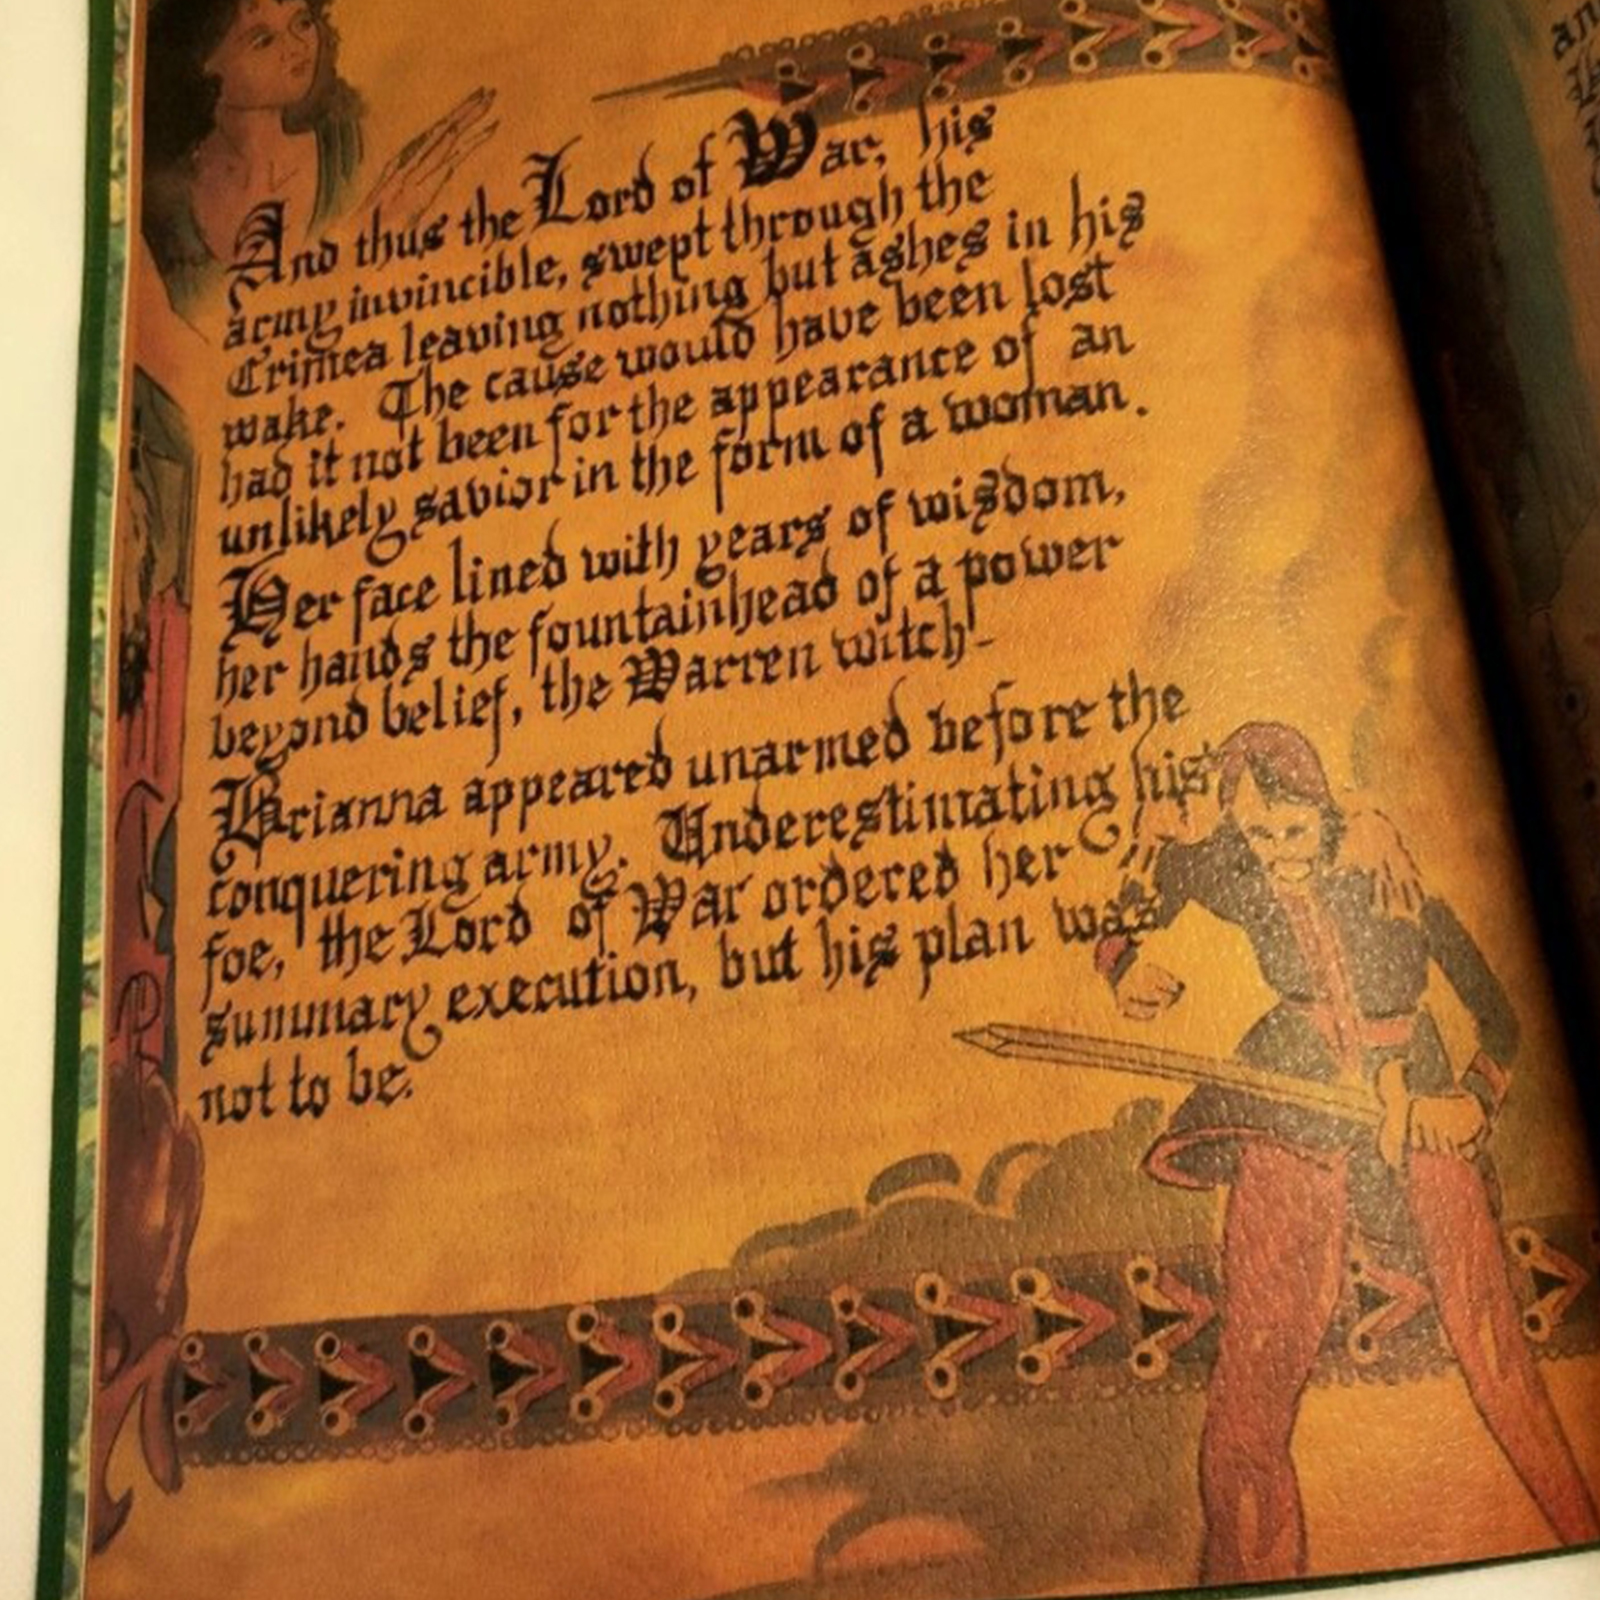 And thus the Lord of War, his
army invincible, swept through the
Crimea leaving nothing but ashes in his
wake. The cause would have been lost
had it not been for the appearance of an
unlikely savior in the form of a woman.
Her face lined with years of wisdom,
her hands the fountainhead of a power
beyond belief, the Warren witch-
Brianna appeared unarmed before the
conquering army. Underestimating his
foe, the Lord of War ordered her
summary execution, but his plan was
not to be.
an